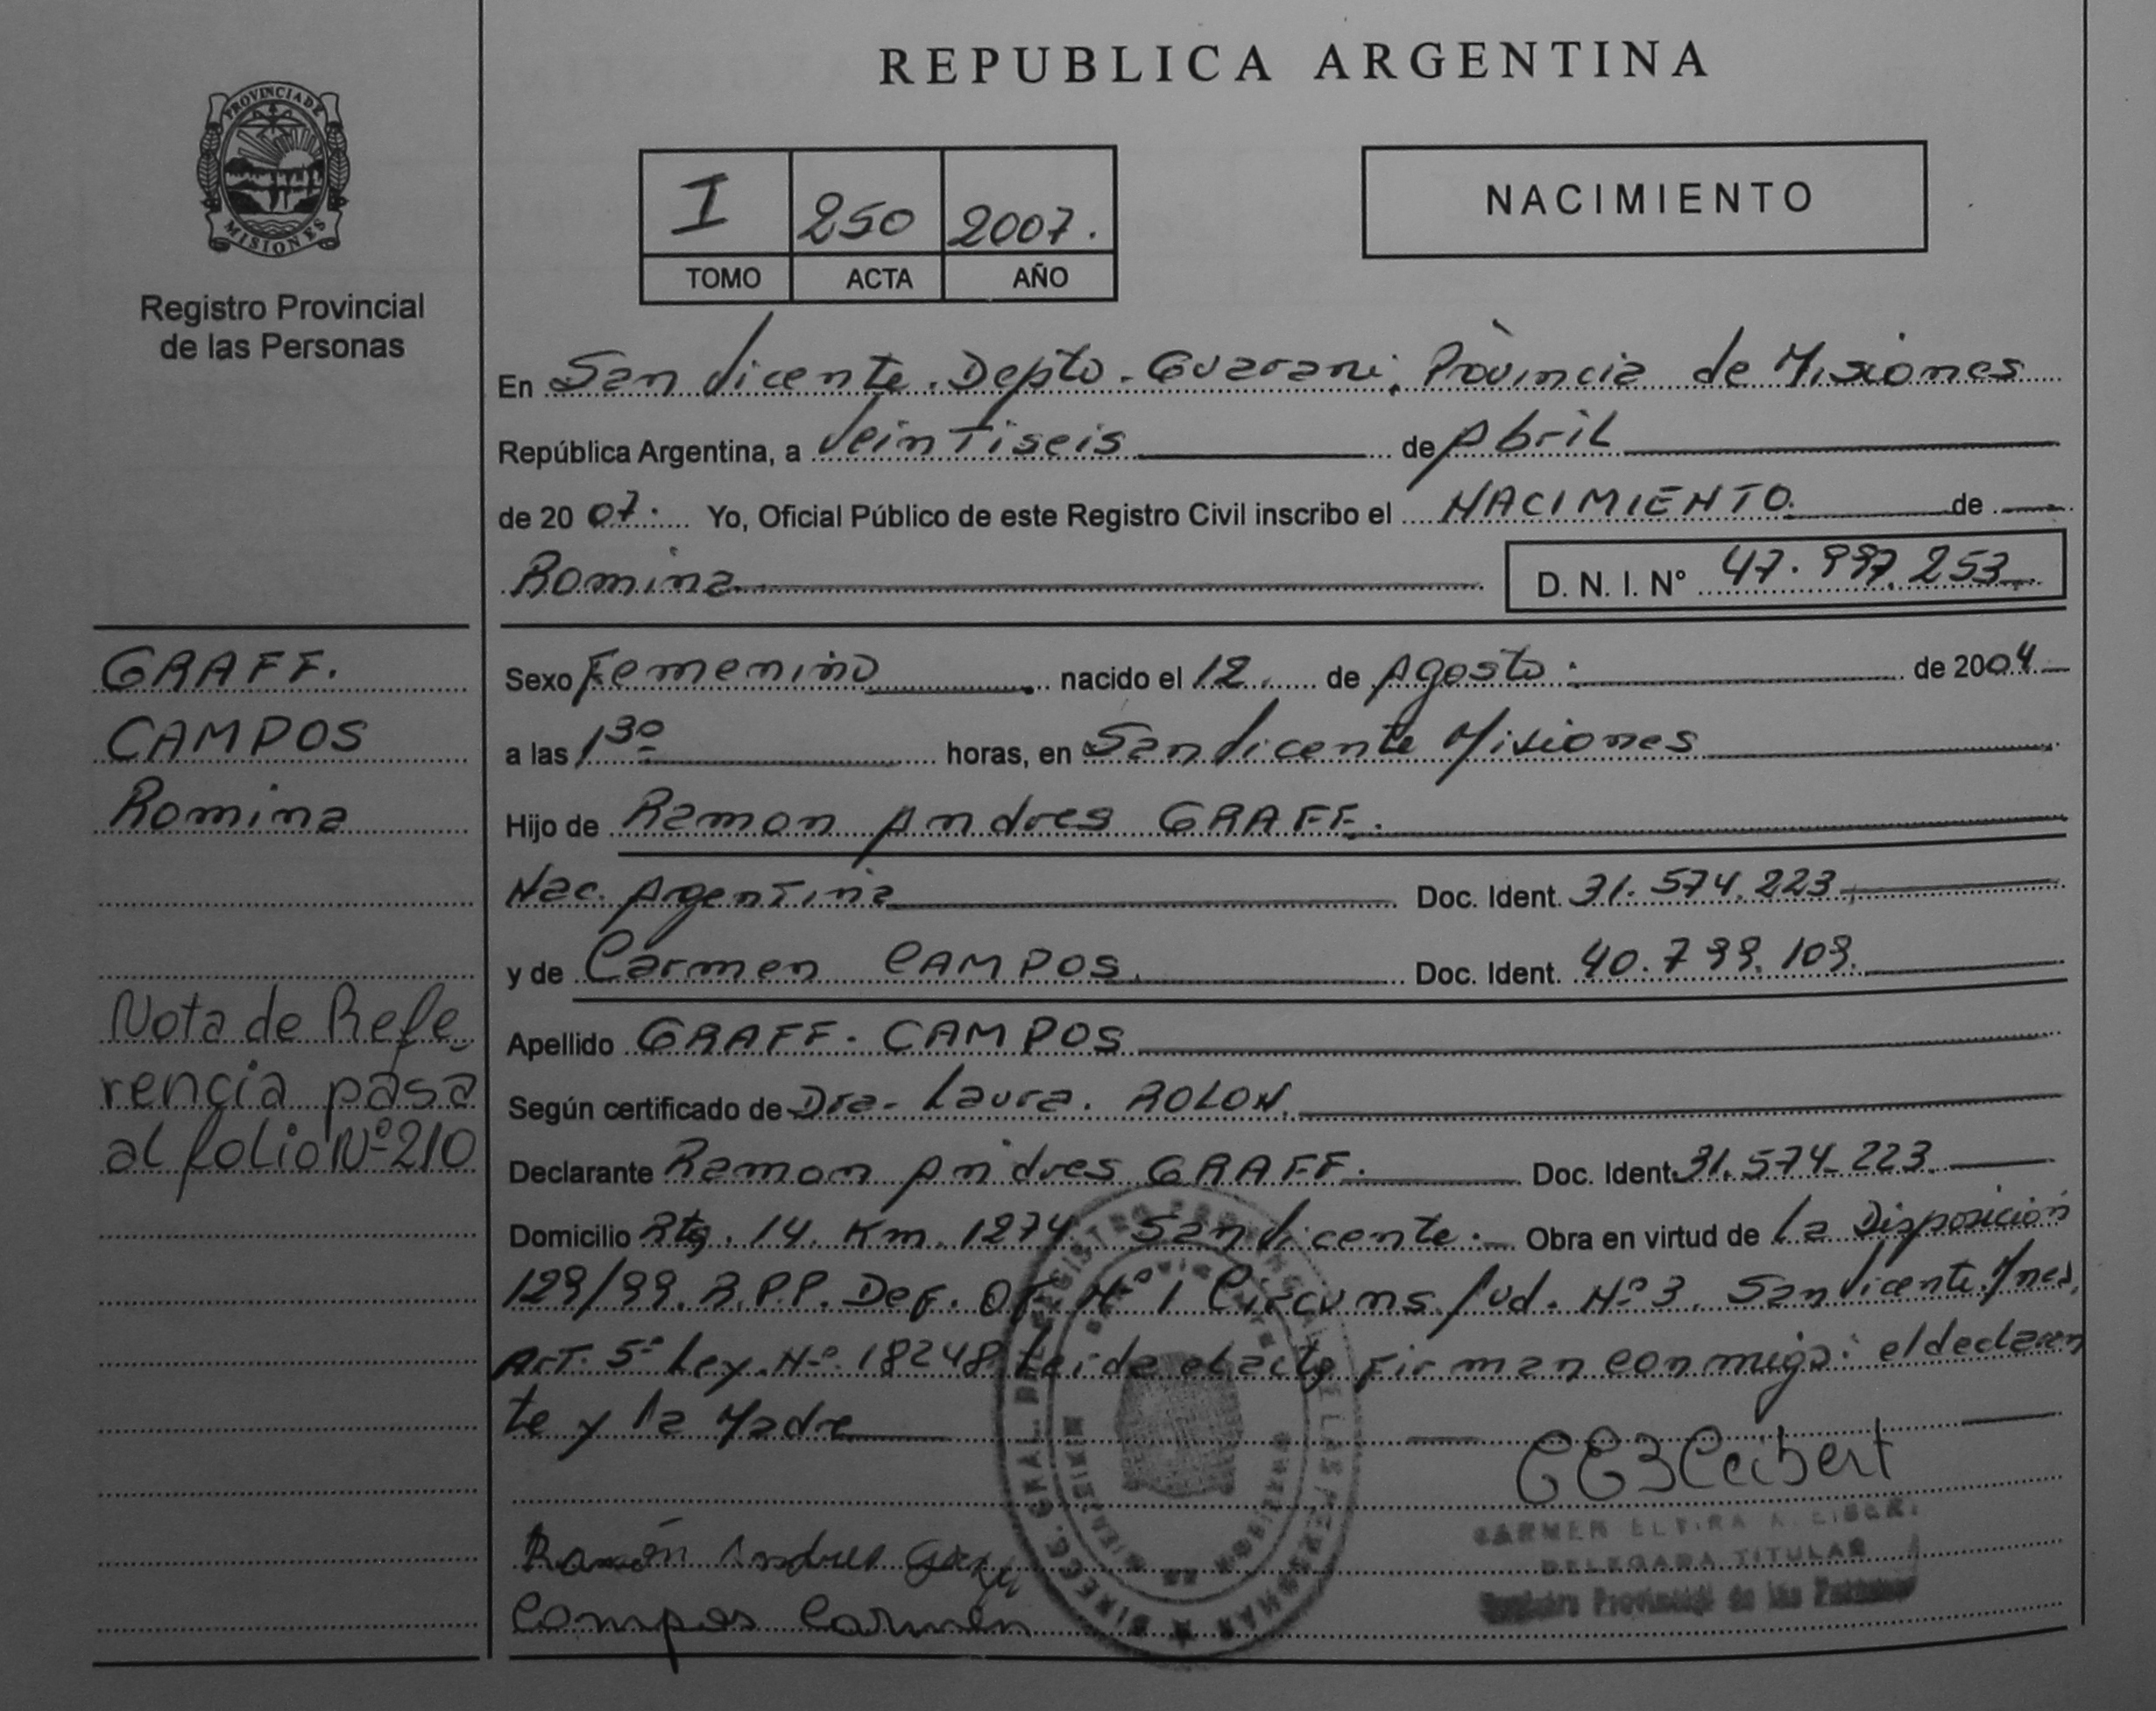 REPUBLICA ARGENTINA
PROVINCIA DE
MISIONES
Registro Provincial
de las Personas
I 250 2007.
TOMO ACTA AÑO
NACIMIENTO
En San Vicente. Depto. Guarani, Provincia de Misiones
República Argentina, a Veintiseis de Abril
de 2007. Yo, Oficial Público de este Registro Civil inscribo el NACIMIENTO. de
Romina D. N. I. N° 47.997.253
GRAFF.
CAMPOS
Romina
Nota de Refe-
rencia pasa
al folio Nº 210
Sexo Femenino nacido el 12. de Agosto. de 2004
a las 1³⁰ horas, en San Vicente Misiones
Hijo de Ramon Andres GRAFF.
Nac. Argentina Doc. Ident. 31.574.223
y de Carmen CAMPOS. Doc. Ident. 40.799.109.
Apellido GRAFF. CAMPOS
Según certificado de Dra. Laura. ROLON.
Declarante Ramon Andres GRAFF. Doc. Ident. 31.574.223
Domicilio Rta. 14. Km. 1274 San Vicente. Obra en virtud de la Disposición
129/99. R.P.P. Def. Of. Nº 1 Circuns. Jud. Nº 3. San Vicente. Mnes.
Art. 5º Ley. Nº. 18248 Leida el acta firman conmigo: el declaran
te y la Madre
CEBLeibert
CARMEN ELVIRA A.
DELEGADA TITULAR
Registro Provincial de las Personas
Ramón Andres Graff
Campos Carmen